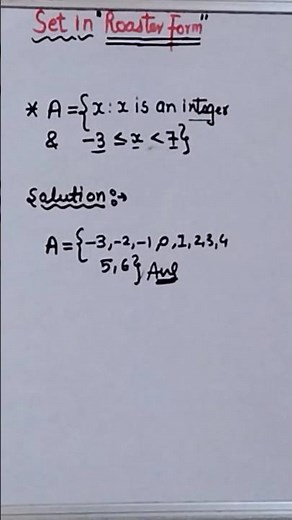 Set in "Roaster Form"
* A = {x : x is an integer
& -3 ≤ x < 7}
Solution :→
A = {-3, -2, -1, 0, 1, 2, 3, 4
5, 6} Ans